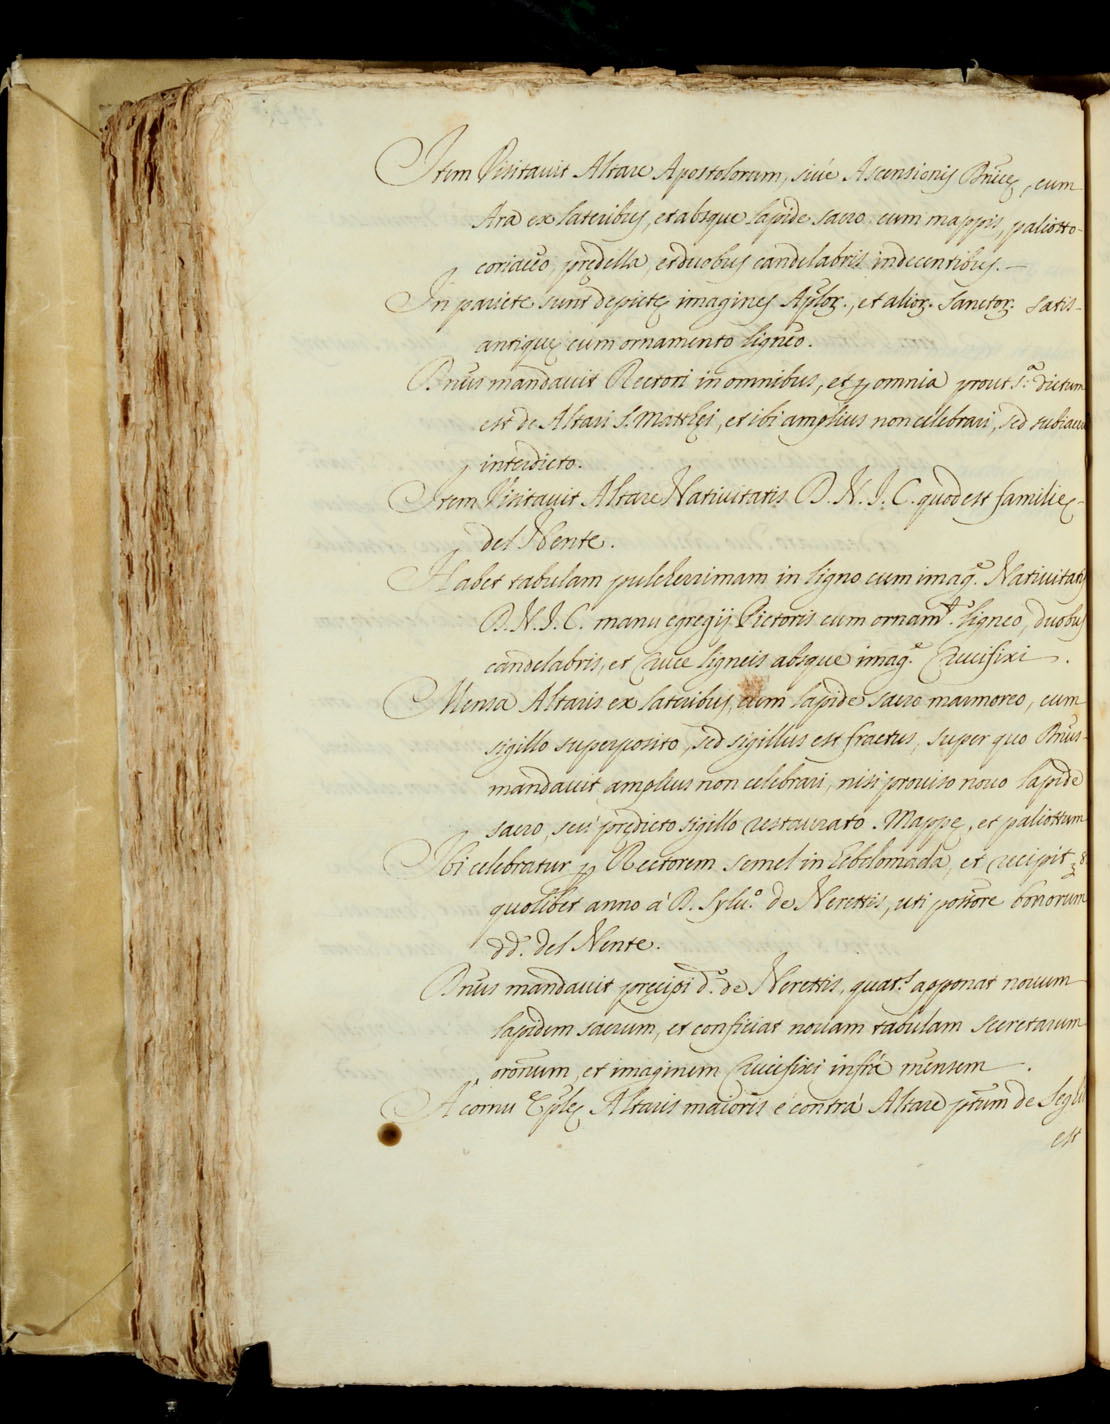 Item Visitauit Altare Apostolorum, siué Ascensionis Dñicę, cum
Ara ex lateribus, et absque lapide sacro cum mappis, paliotto
coriaceo, prędella, et duobus candelabris indecentibus.
In pariete sunt depictę imagines Aplor., et alior. Sanctor. satis
antiquę cum ornamento ligneo.
Dñus mandauit Rectori in omnibus, et p omnia prout s.ª dictum
est de Altari S. Matthęi, et ibi amplius non celebrari, sed subiacere
interdicto.
Item Visitauit Altare Natiuitatis D. N. J. C. quod est familię
del Nente.
Habet tabulam pulcherrimam in ligno cum imag.e Natiuitatis
D. N. J. C. manu egregij Pictoris cum ornam.to ligneo, duobus
candelabris, et Cruce ligneis absque imag.e Crucifixi.
Mensa Altaris ex lateribus, cum lapide sacro marmoreo, cum
sigillo superposito, sed sigillus est fractus, super quo Dñus
mandauit amplius non celebrari, nisi prouiso nouo lapide
sacro, seu prędicto sigillo restaurato. Mappę, et paliottum
Ibi celebratur p Rectorem semel in Eebdomada, et recipit
quolibet anno á D. Sylu.o de Nerettis, uti possore bonorum
dd. del Nente.
Dñus mandauit pręcipi d.o de Nerettis, quat.s apponat nouum
lapidem sacrum, et conficiat nouam tabulam secretarum
orõnum, et imaginem Crucifixi infrá mensem.
A cornu Eplę Altaris maioris é contrá Altare ptum de
est